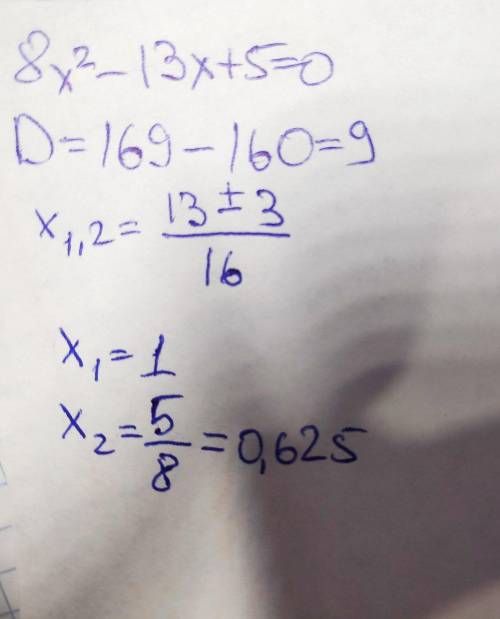 8x² - 13x + 5 = 0
D = 169 - 160 = 9
x₁,₂ = (13 ± 3)/16
x₁ = 1
x₂ = 5/8 = 0,625